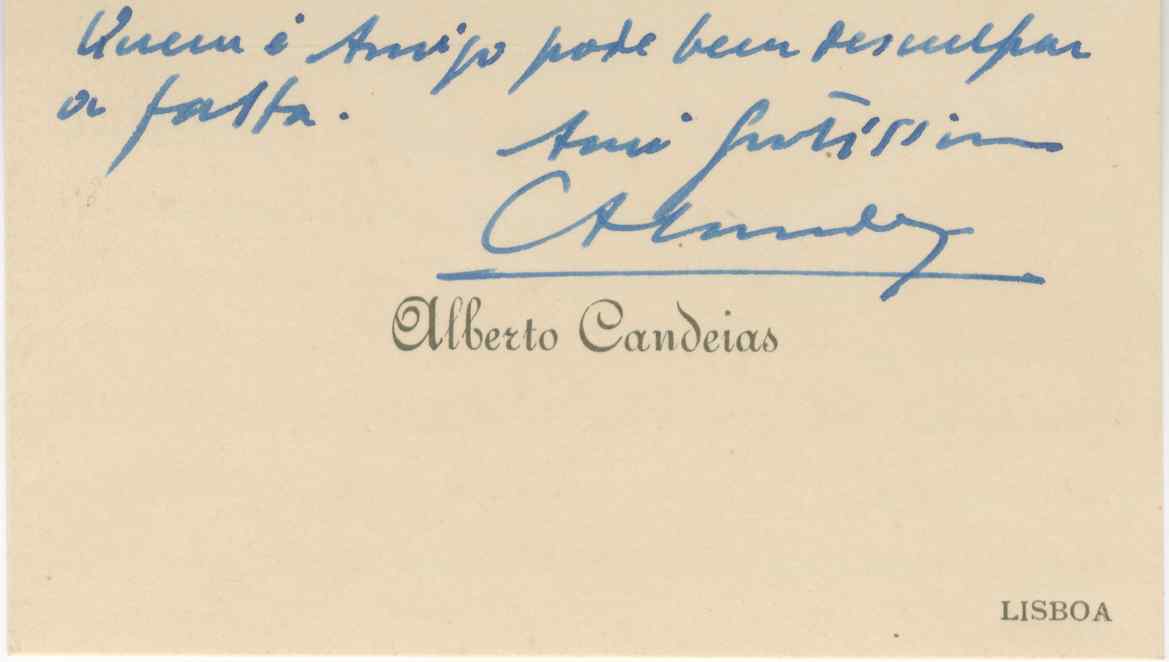 Quem é Amigo pode bem desculpar
a falta.
Ami Gratíssimo
Alberto Candeias
LISBOA